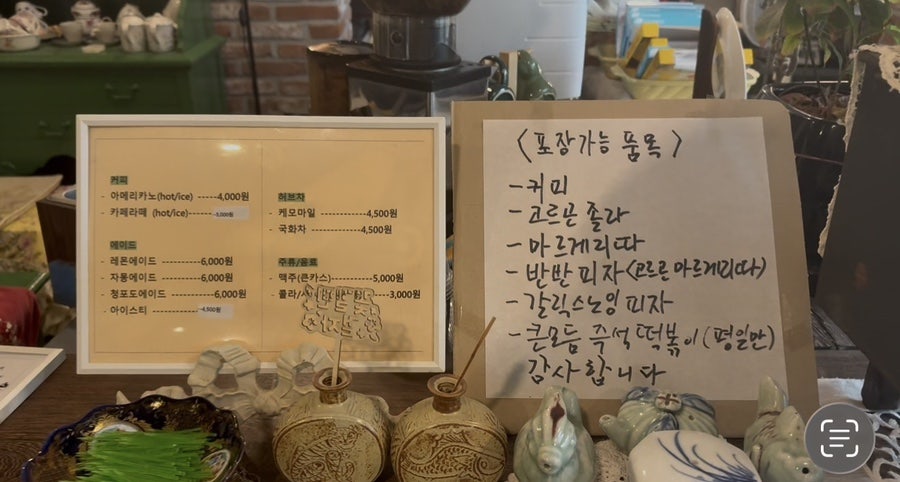 커피
아메리카노(hot/ice) -----4,000원
카페라떼 (hot/ice)-----5,000원
에이드
레몬에이드 -----------6,000원
자몽에이드 -----------6,000원
청포도에이드 ---------6,000원
아이스티 ----------4,500원
허브차
케모마일 -----------4,500원
국화차 -------------4,500원
주류/음료
맥주(큰카스)---------5,000원
콜라/ 3,000원
<포장가능 품목>
-커피
-고르곤 졸라
-마르게리따
-반반 피자<고르곤 마르게리따>
-갈릭스노잉 피자
-큰모듬 즉석 떡볶이(평일만)
감사합니다